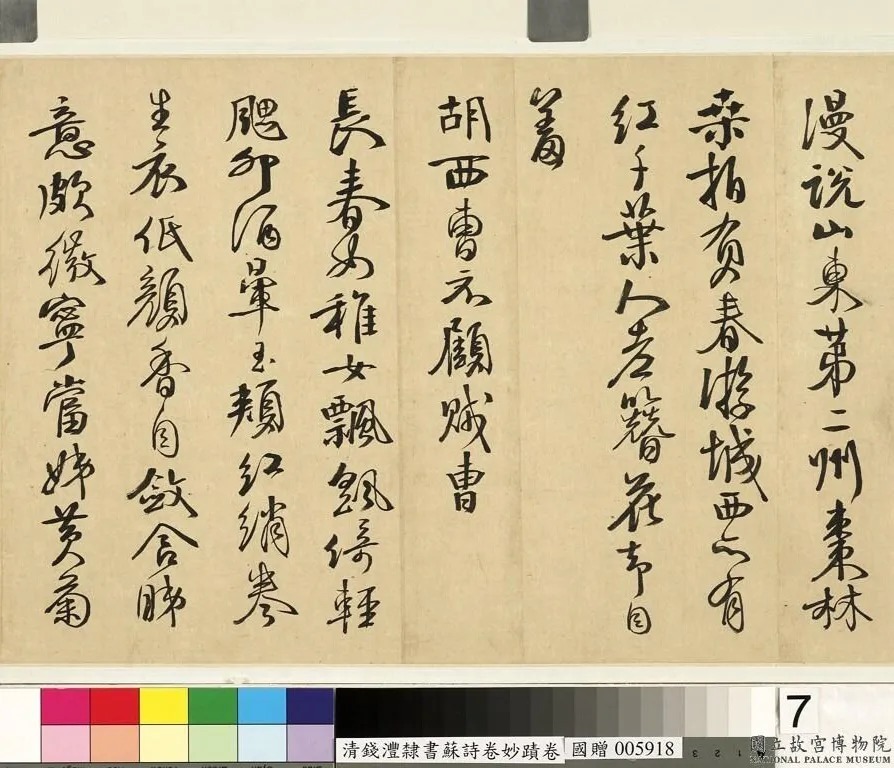 漫說山東第二州棗林
桒拍負春游城西亦有
紅千葉人老簪花却自
羞
胡西曹示顧賊曹
長春如稚女飄颻倚輕
颸卯酒暈玉頰紅綃卷
生衣低顏香自斂含睇
意頗微寧當娣黃菊
7
清錢灃隸書蘇詩卷妙蹟卷 國贈 005918
國立故宮博物院
NATIONAL PALACE MUSEUM